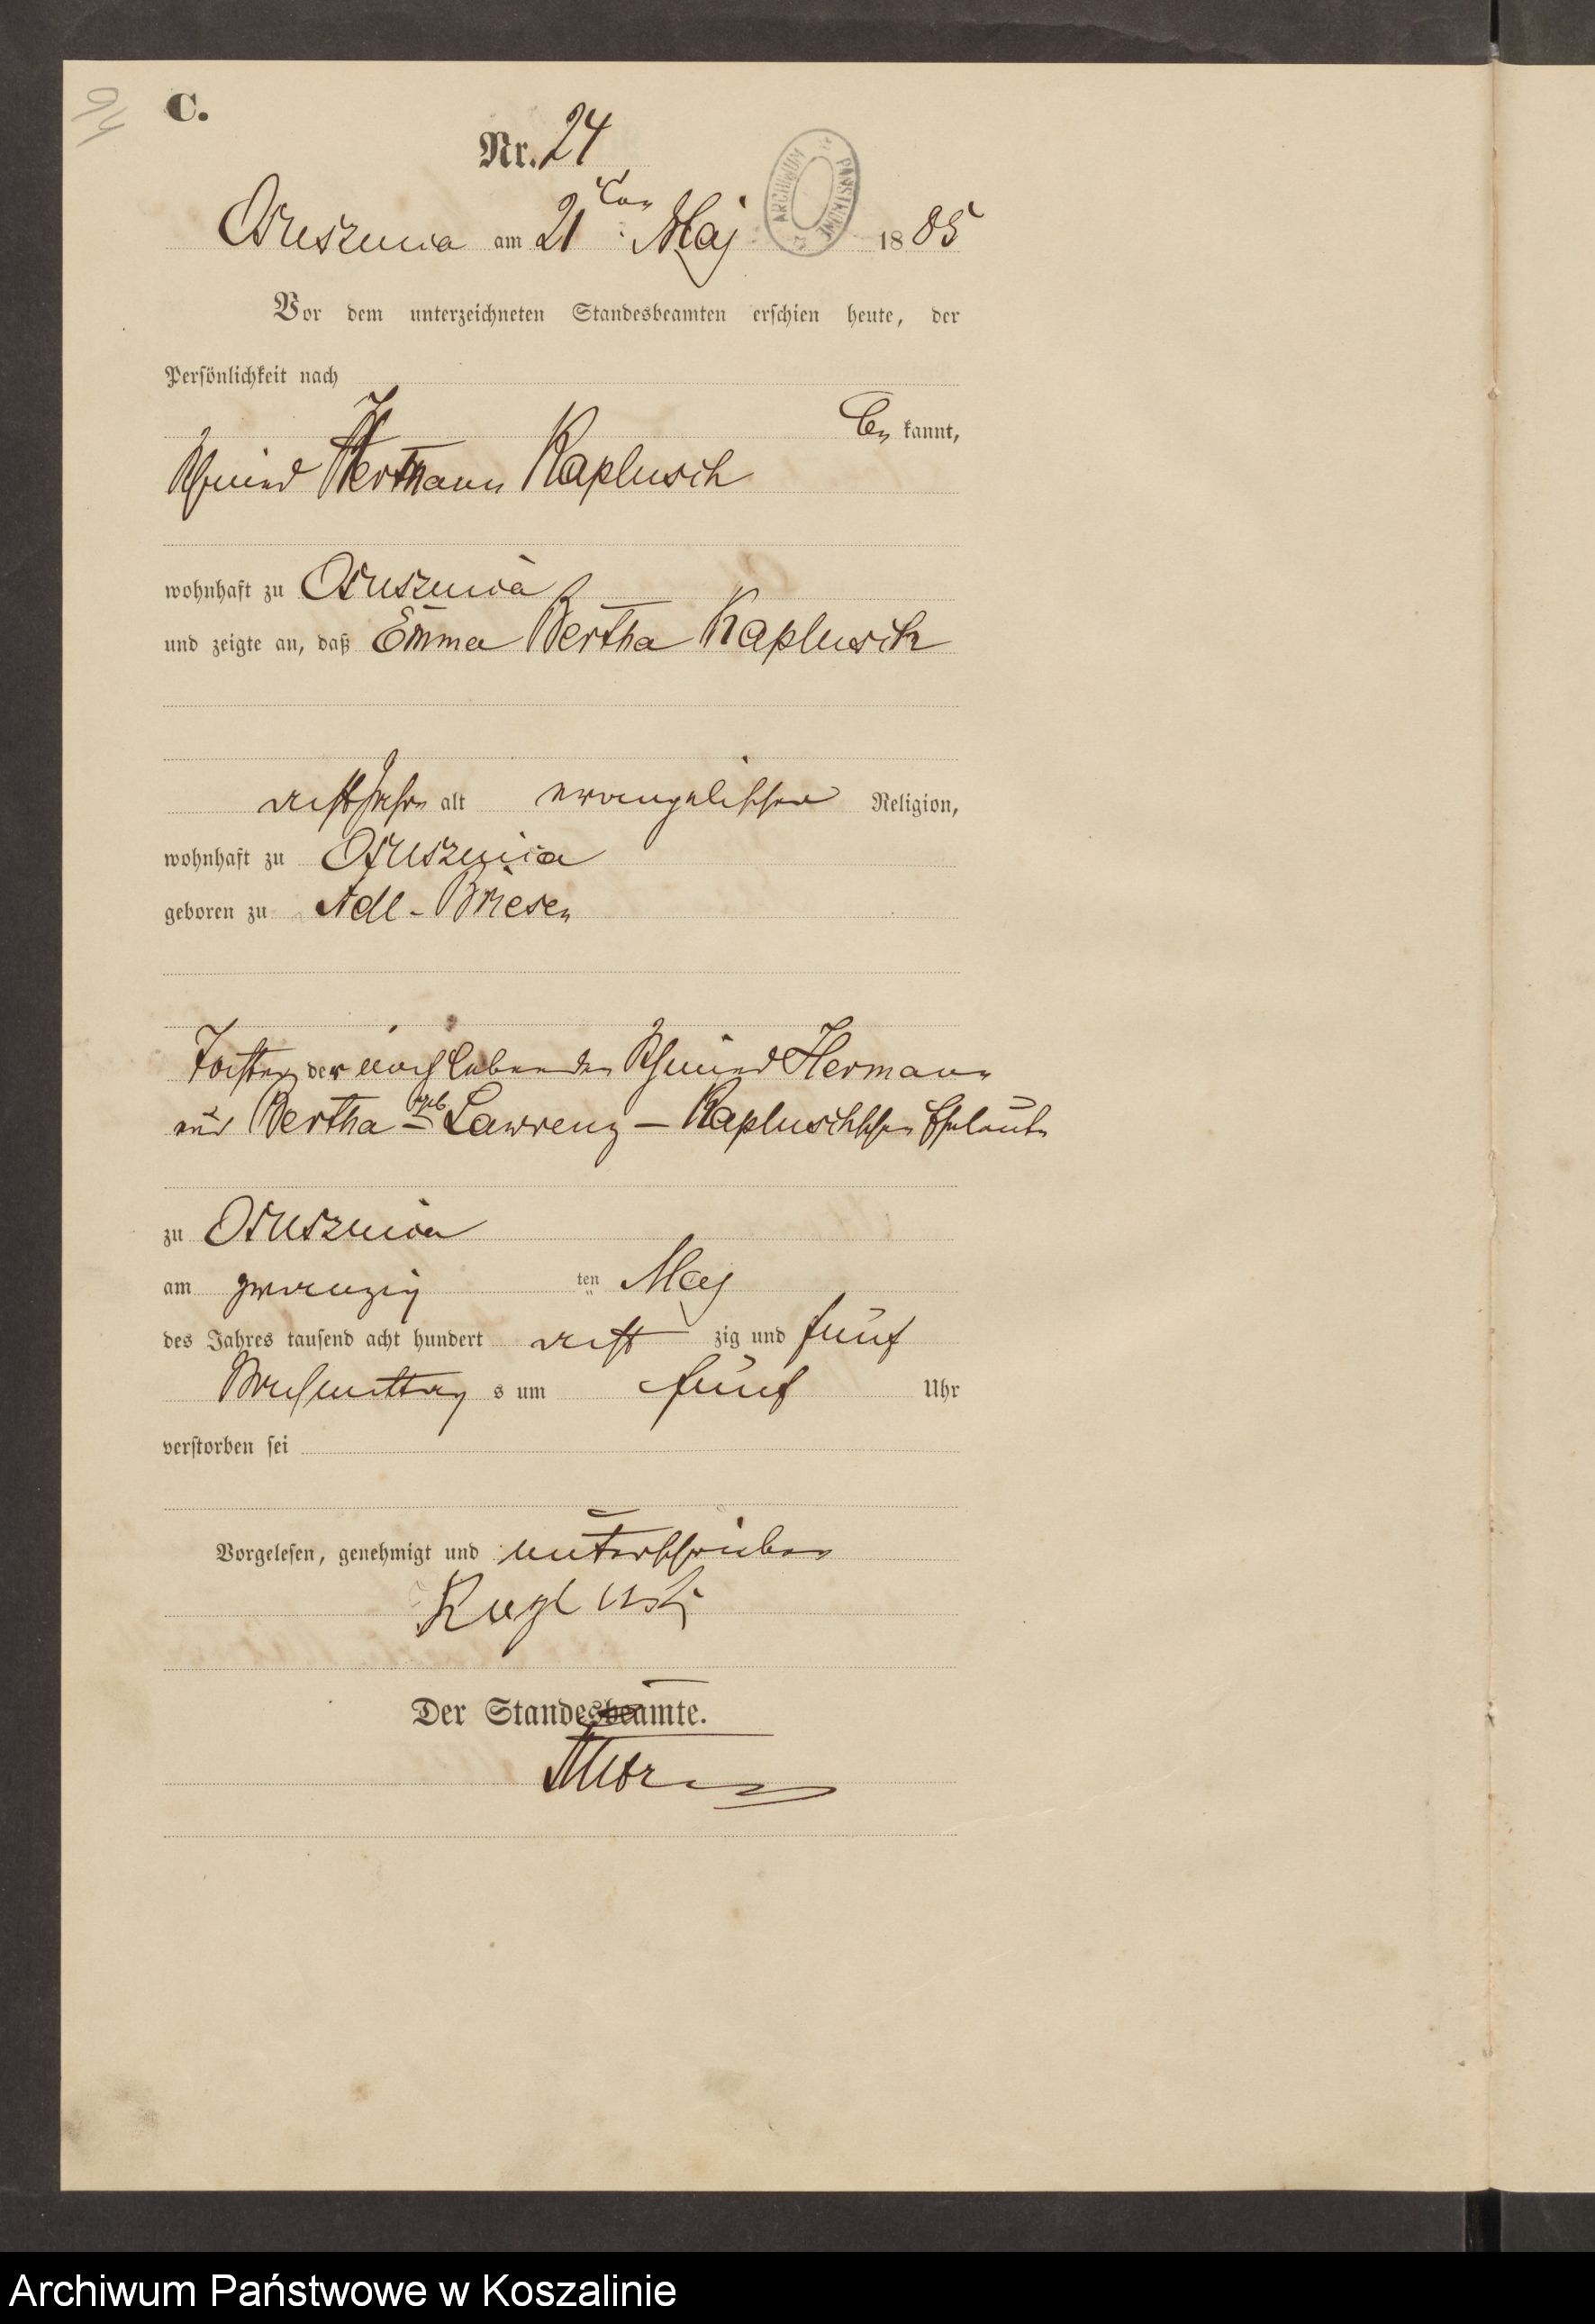 C.
Nr. 24
ARCHIWUM PAŃSTWOWE
Osusznica am 21ten Maj 1885
Vor dem unterzeichneten Standesbeamten erschien heute, der
Persönlichkeit nach
be kannt,
Schmied Hermann Kaplusch
wohnhaft zu Osusznica
und zeigte an, daß Emma Bertha Kaplusch
acht Jahr alt evangelischer Religion,
wohnhaft zu Osusznica
geboren zu Adl-Briesen
Tochter der noch lebenden Schmied Hermann
und Bertha geb Lawrenz - Kapluschschen Eheleute
zu Osusznica
am zwanzig ten Maj
des Jahres tausend acht hundert acht zig und fünf
Nachmittag s um fünf Uhr
verstorben sei
Vorgelesen, genehmigt und unterschrieben
Der Standesbeamte.
Archiwum Państwowe w Koszalinie